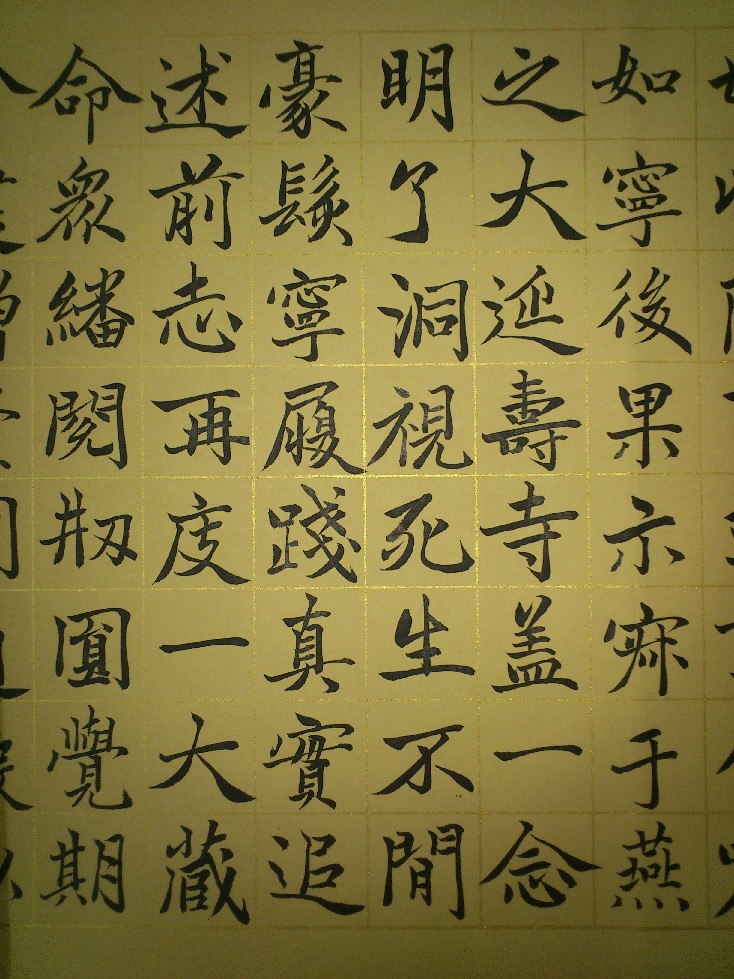 如寧後果示寂于燕
之大延壽寺盖一念
明了洞視死生不閒
豪髮寧履踐真實追
述前志再度一大藏
命眾繙閱剏圓覺期